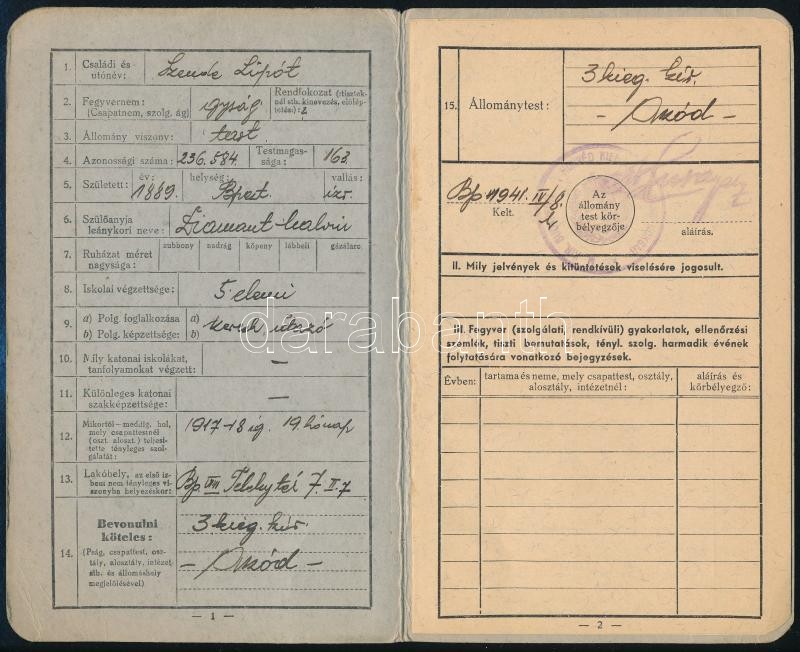 1. Családi és
utónév:
Szende Lipót
2. Fegyvernem:
(Csapatnem, szolg. ág)
gyság
Rendfokozat (tisztek-
nél stb. kinevezés, előlép-
tetés):
3. Állomány viszony:
4. Azonossági száma: 236.584. Testmagas-
sága: 163
5. Született: év: 1889. helység: Bpest. vallás: izr.
6. Szülőanyja
leánykori neve: Diamant Malvin
7. Ruházat méret
nagysága: zubbony nadrág köpeny lábbeli gázálarc
8. Iskolai végzettsége: 5 elemi
9. a) Polg. foglalkozása
b) Polg. képzettsége:
a)
b)
keresk. utazó
10. Mily katonai iskolákat,
tanfolyamokat végzett: —
11. Különleges katonai
szakképzettsége: —
12. Mikortól—meddig, hol,
mely csapattestnél
(oszt. aloszt.) teljesí-
tette tényleges szol-
gálatát:
1917-18 ig. 19 hónap
13. Lakóhely, az első íz-
ben nem tényleges vi-
szonyba helyezéskor:
Bp VIII Teleky tér 7. II. 7
14. Bevonulni
köteles:
(Pság, csapattest, osz-
tály, alosztály, intézet
stb. és állomáshely
megjelölésével)
3 kieg. ker.
— Aszód —
— 1 —
15. Állománytest:
3 kieg. ker.
— Aszód —
Bp 1941. IV/8.
Kelt.
Az
állomány
test kör-
bélyegzője
aláírás.
II. Mily jelvények és kitüntetések viselésére jogosult.
III. Fegyver (szolgálati, rendkívüli) gyakorlatok, ellenőrzési
szemlék, tiszti bemutatások, tényl. szolg. harmadik évének
folytatására vonatkozó bejegyzések.
Évben:
tartama és neme, mely csapattest, osztály,
alosztály, intézetnél:
aláírás és
körbélyegző:
— 2 —
darabanth